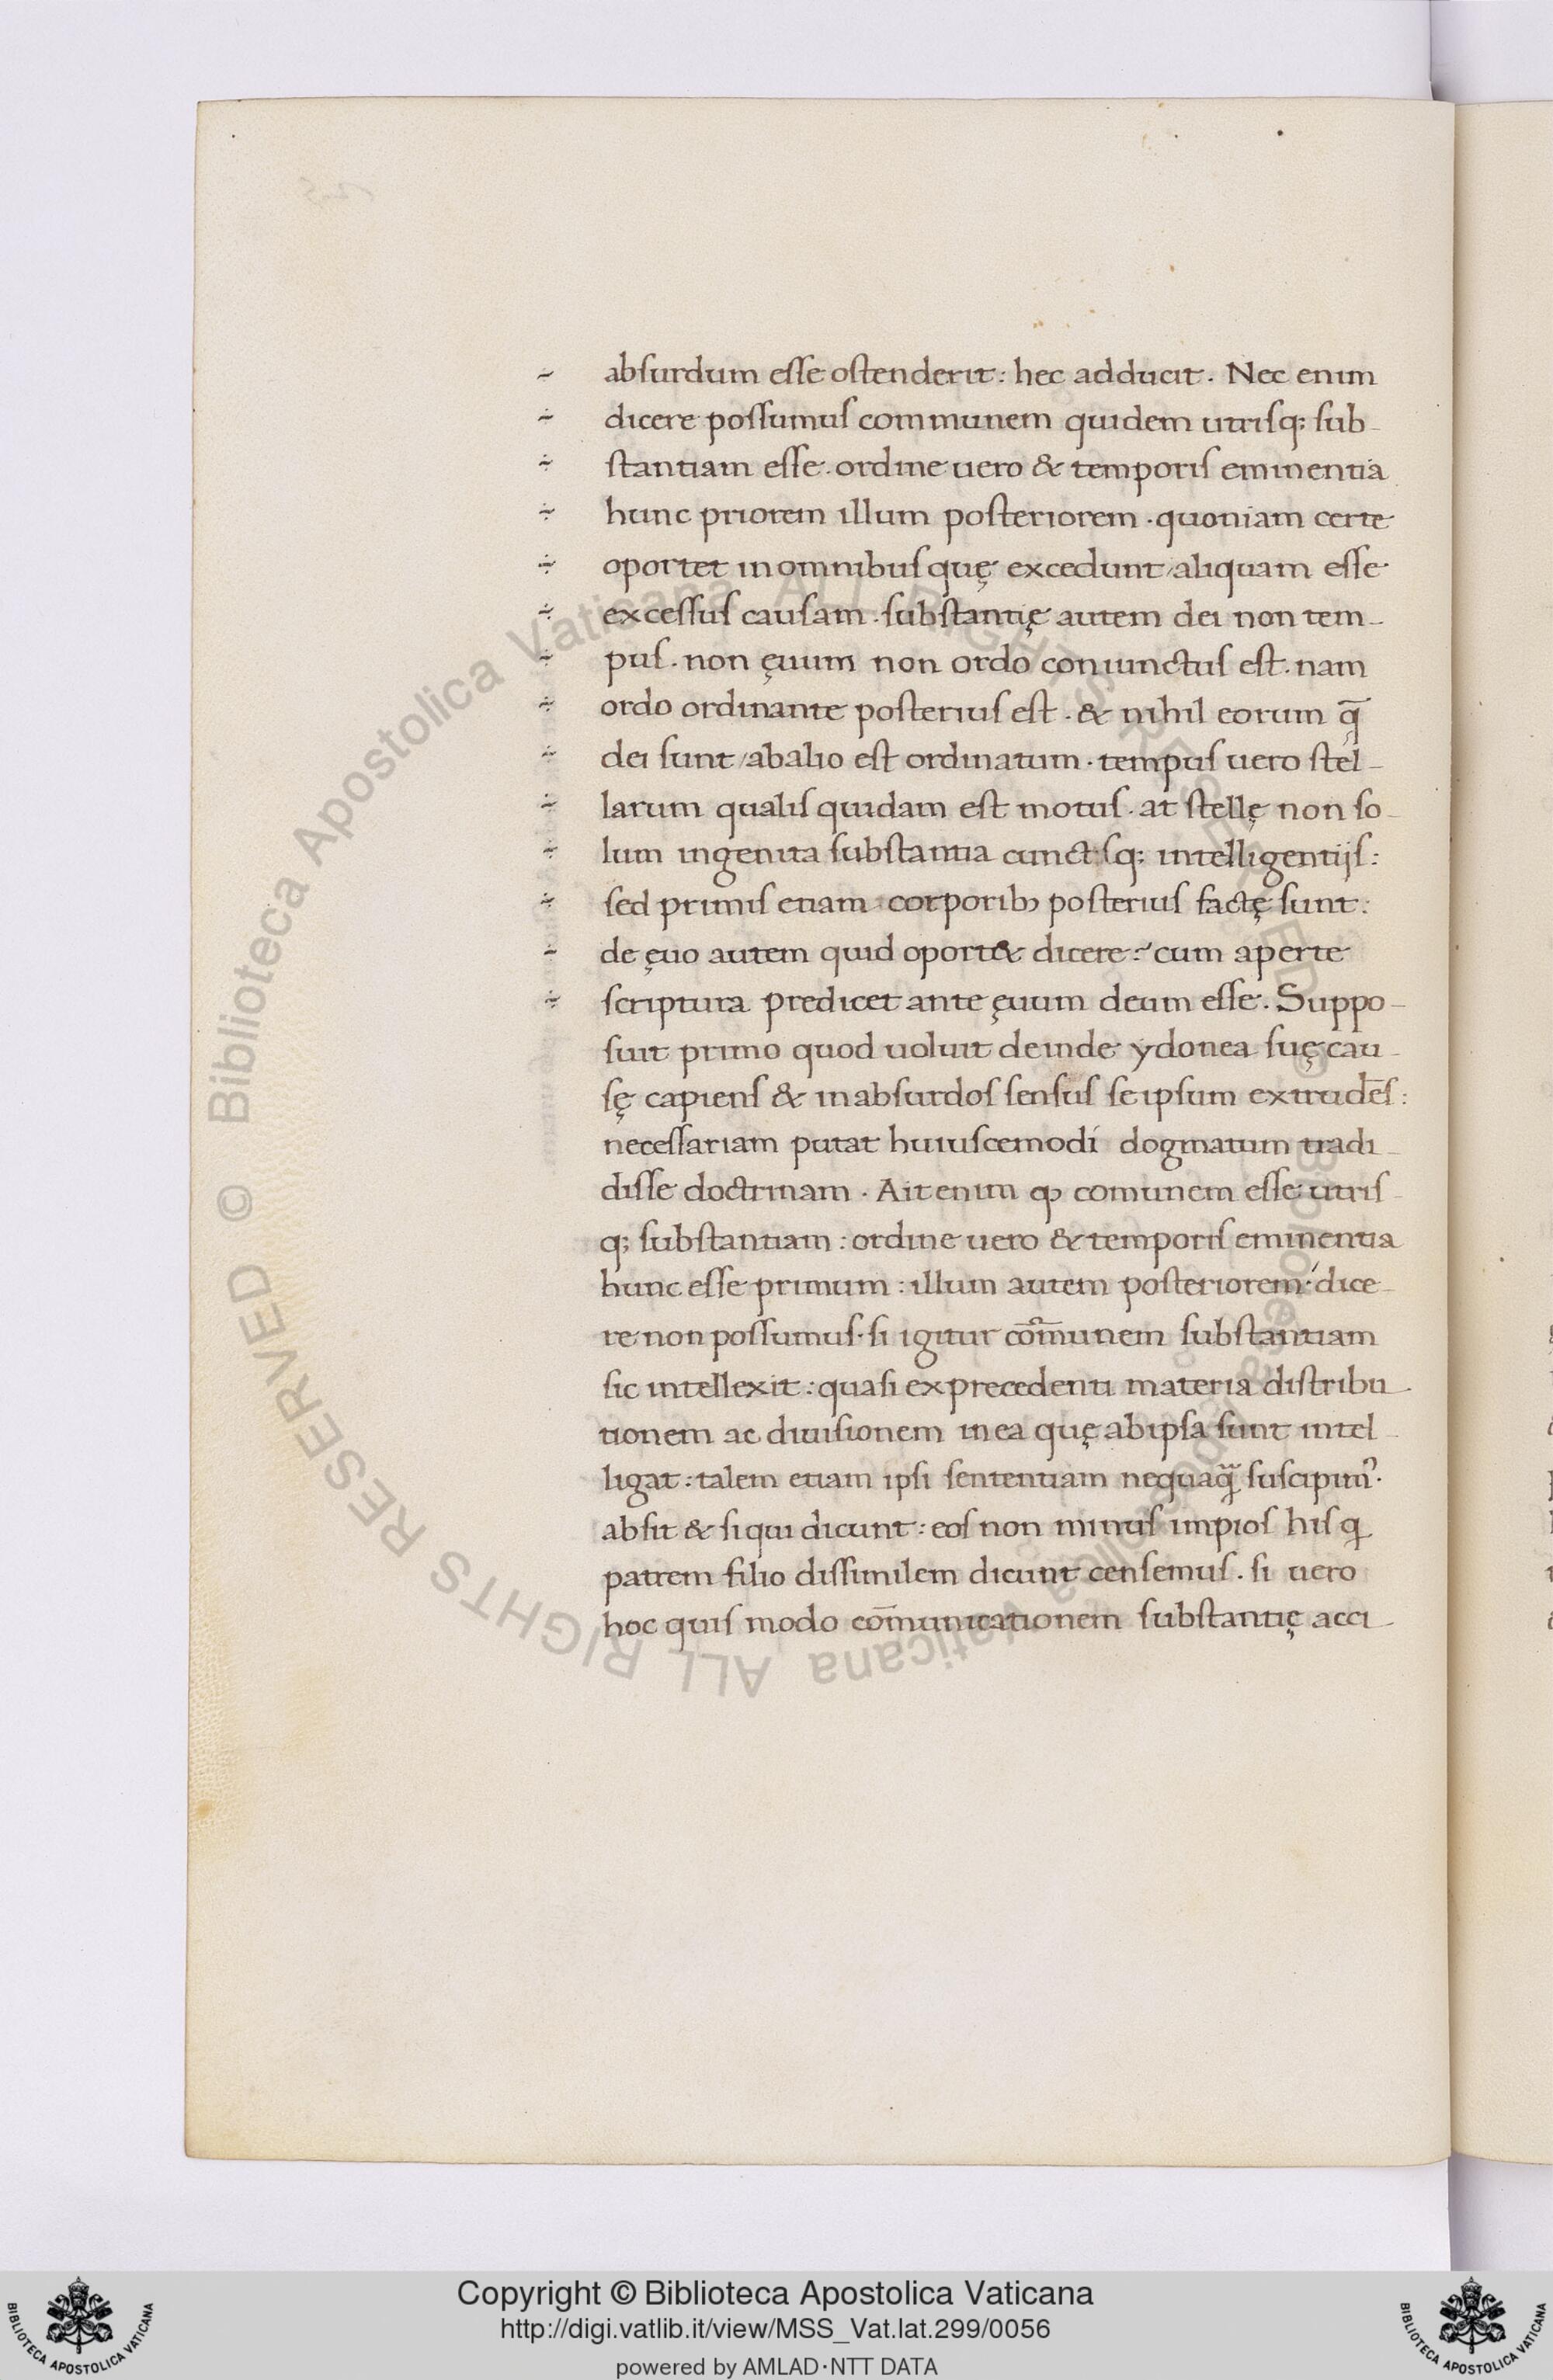 absurdum esse ostenderit: hec adducit. Nec enim
dicere possumus communem quidem utrisq; sub-
stantiam esse. ordine uero & temporis eminentia
hunc priorem illum posteriorem. quoniam certe
oportet in omnibus quę excedunt / aliquam esse
excessus causam. substantię autem dei non tem-
pus. non ęuum non ordo coniunctus est. nam
ordo ordinante posterius est. & nihil eorum q̄
dei sunt / ab alio est ordinatum. tempus uero stel-
larum qualis quidam est motus. at stellę non so-
lum ingenita substantia cunctisq; intelligentijs:
sed primis etiam corporibꝫ posterius factę sunt:
de ęuo autem quid oport& dicere: cum aperte
scriptura predicet ante ęuum deum esse. Suppo-
suit primo quod uoluit deinde ydonea suę cau-
sę capiens & in absurdos sensus se ipsum extrudēs:
necessariam putat huiuscemodi dogmatum tradi-
disse doctrinam. Ait enim ꝙ comunem esse utris-
q; substantiam: ordine uero & temporis eminentia
hunc esse primum: illum autem posteriorem: dice-
re non possumus. si igitur cōmunem substantiam
sic intellexit: quasi ex precedenti materia distribu-
tionem ac diuisionem in ea quę ab ipsa sunt intel-
ligat: talem etiam ipsi sententiam nequaq̄ suscipimꝰ.
absit & si qui dicunt: eos non minus impios his q
patrem filio dissimilem dicunt censemus. si uero
hoc quis modo cōmunicationem substantię acci-
Copyright © Biblioteca Apostolica Vaticana
http://digi.vatlib.it/view/MSS_Vat.lat.299/0056
powered by AMLAD·NTT DATA
BIBLIOTECA APOSTOLICA VATICANA
BIBLIOTECA APOSTOLICA VATICANA
© Biblioteca Apostolica Vaticana ALL RIGHTS RESERVED © Biblioteca Apostolica Vaticana ALL RIGHTS RESERVED